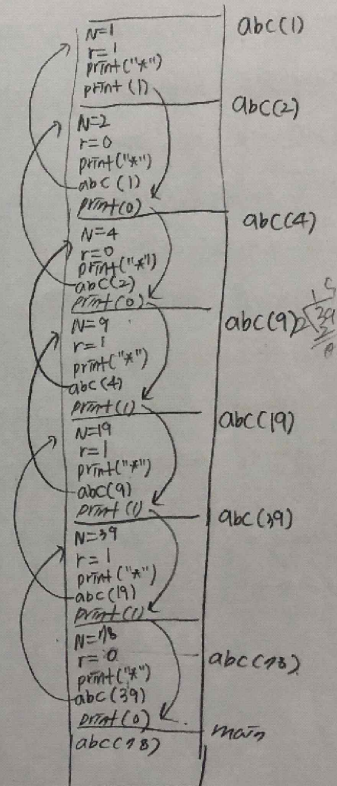 N=1
r=1
print("*")
print(1)
abc(1)
N=2
r=0
print("*")
abc(1)
print(0)
abc(2)
N=4
r=0
print("*")
abc(2)
print(0)
abc(4)
N=9
r=1
print("*")
abc(4)
print(1)
abc(9)
N=19
r=1
print("*")
abc(9)
print(1)
abc(19)
N=39
r=1
print("*")
abc(19)
print(1)
abc(39)
N=78
r=0
print("*")
abc(39)
print(0)
abc(78)
abc(78)
main